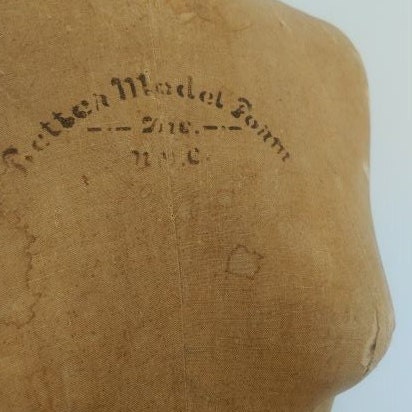 Better Model Form
Inc.
N.Y.C.